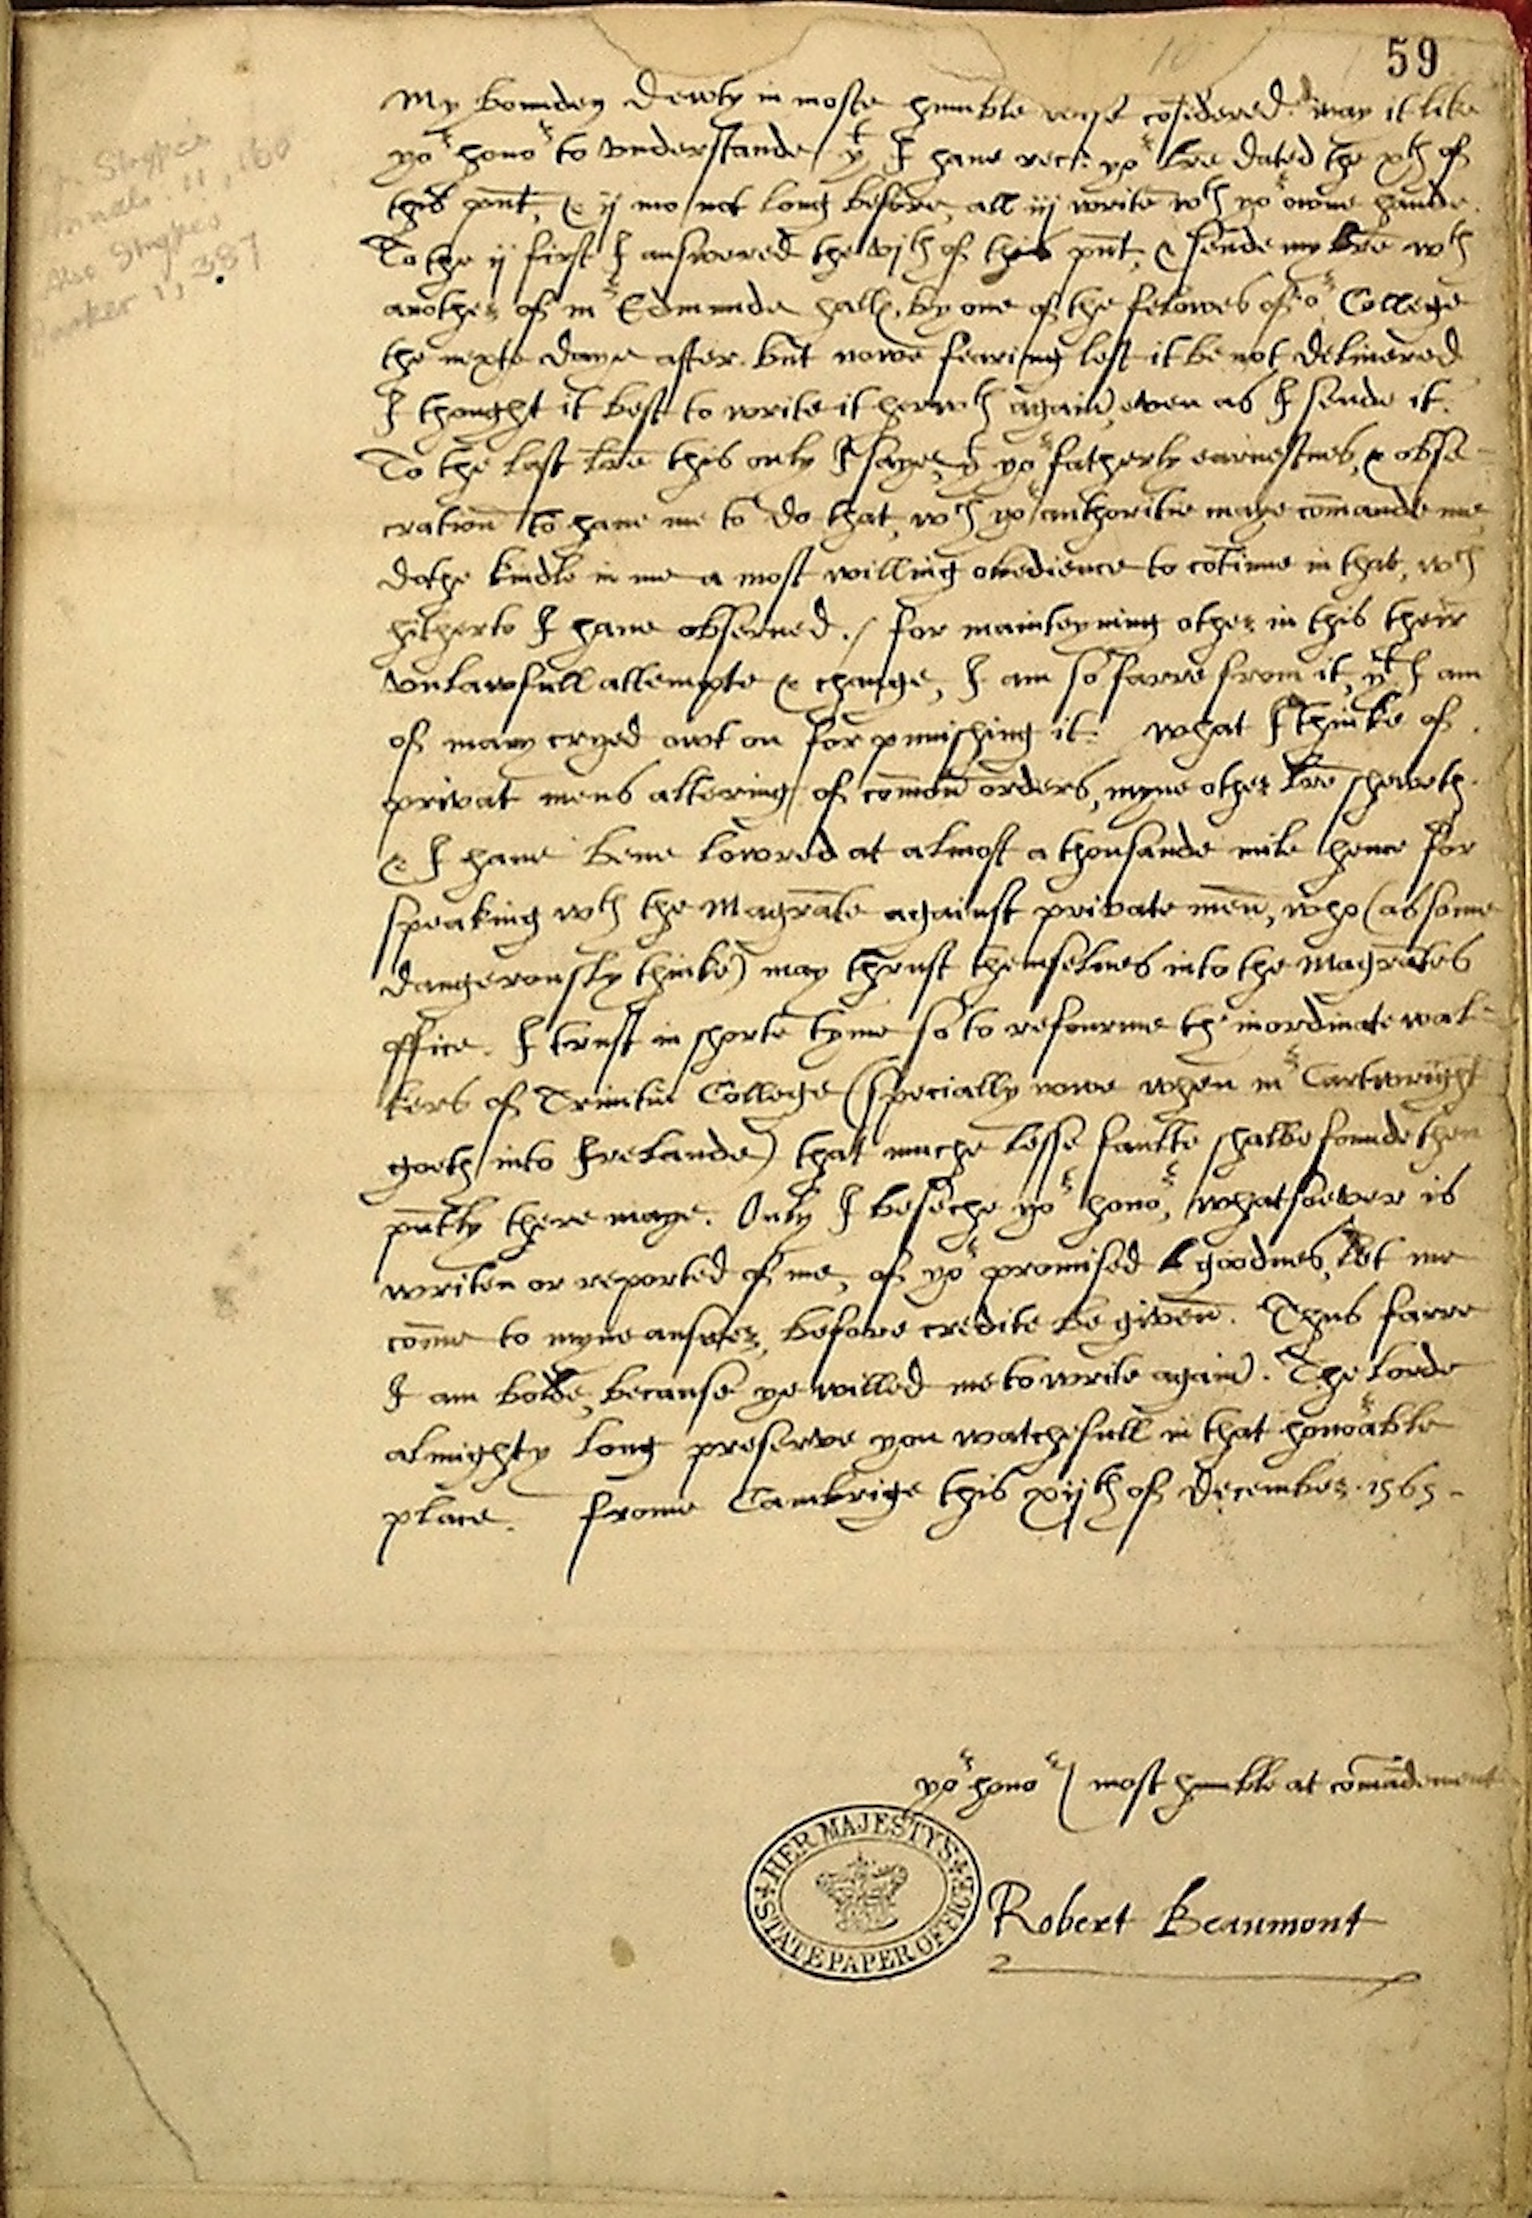 59
My bounden dewty in moste humble wise cōsidered. may it like
yoʳ honoʳ to vnderstande yᵗ I haue rec: yoʳ lrē dated the xth of
this pn̄t, & ij mo not long before, all iij writē wth yoʳ owne hande.
To the ij first I answered the vijth of this pn̄t, & sende my lrē wth
another of mʳ Edmunde halls, by one of the felowes of oʳ College
the nexte daye after. but nowe fearing lest it be not deliuered
I thought it best to write it herwth again, even as I sende it.
To the last lrē this only I saye, yᵗ yoʳ fatherly earnestnes, & obse-
cration to haue me to do that, wch yoʳ authoritie maye cōmande me,
dothe kindle in me a most willing obedience to cōtinue in that, wch
hitherto I haue observed. / for mainteyning other in this their
vnlawfull attempte & change, I am so farre from it, yᵗ I am
of many cryed owt on for punishing it. What I thinke of
privat mens altering of com̄on orders, myne other lrē sheweth.
& I haue bene lowred at almost a thousande mile hence for
speaking wth the Magrāte against private men, who (as some
dangerously thinke) may thrust themselues into the Magrātes
office. I trust in shorte tyme so to refourme th' inordinate wal-
kers of Trinitie College (specially nowe when mʳ Cartwright
goeth into Irelande) that muche lesse faulte shalbe founde then
pn̄tly there maye. Only I beseche yoʳ honoʳ, whatsoever is
writen or reported of me, of yoʳ promised goodnes, let me
come to myne answer, before credite be given. Thus farre
I am bolde, because ye willed me to write again. The lorde
almighty long preserve you watchefull in that honoʳable
place. frome Cambrige this xijth of December. 1565.
yoʳ honoʳs most humble at com̄andement
Robert Beaumont
HER MAJESTYS
STATE PAPER OFFICE
Strype's
Annals. 11, 160
Also Strypes
Parker 1, 387